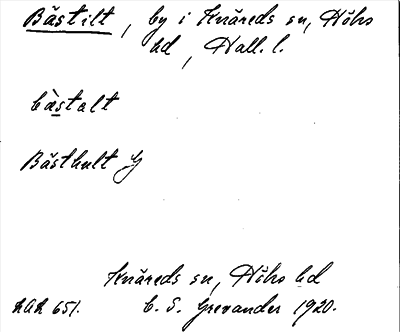 Båstilt, by i Knäreds sn, Höks
hd, Hall. l.
bàstalt
Båsthult G
Knäreds sn, Höks hd
AAA 651. C. S. Grevander 1920.